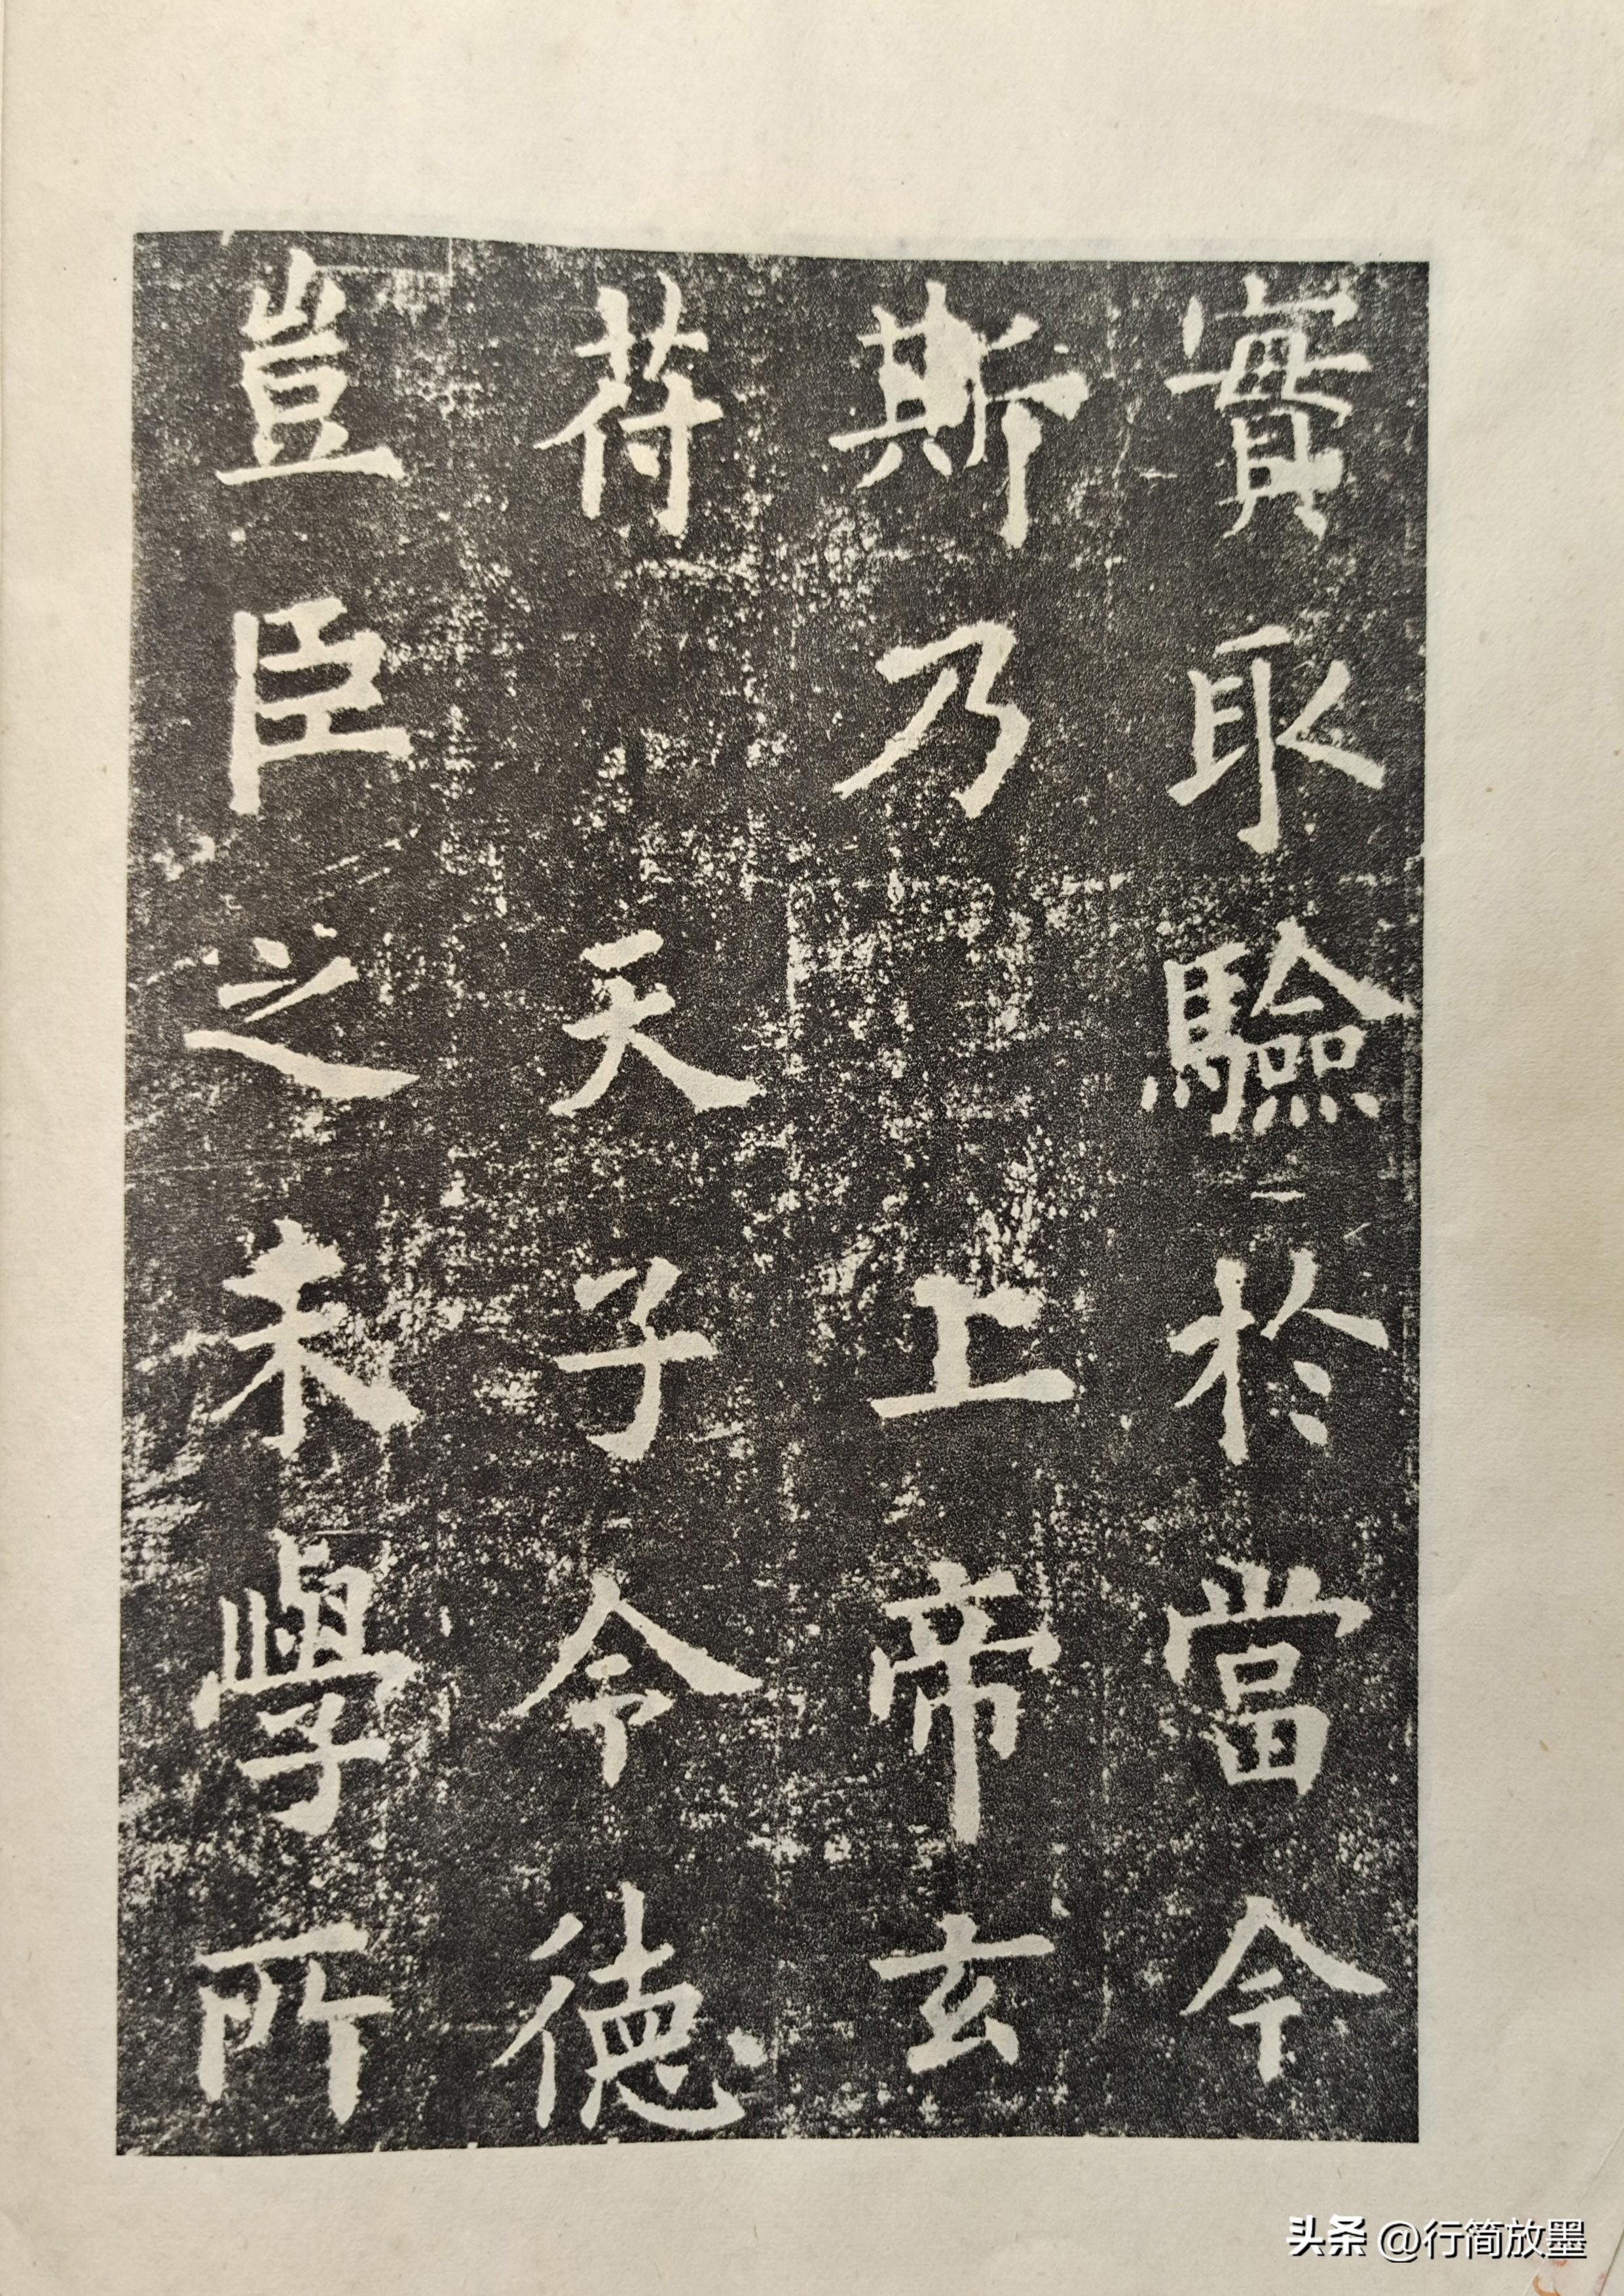 實取驗於當今
斯乃上帝玄
苻天子令德
豈臣之末學所
头条 @行简放墨